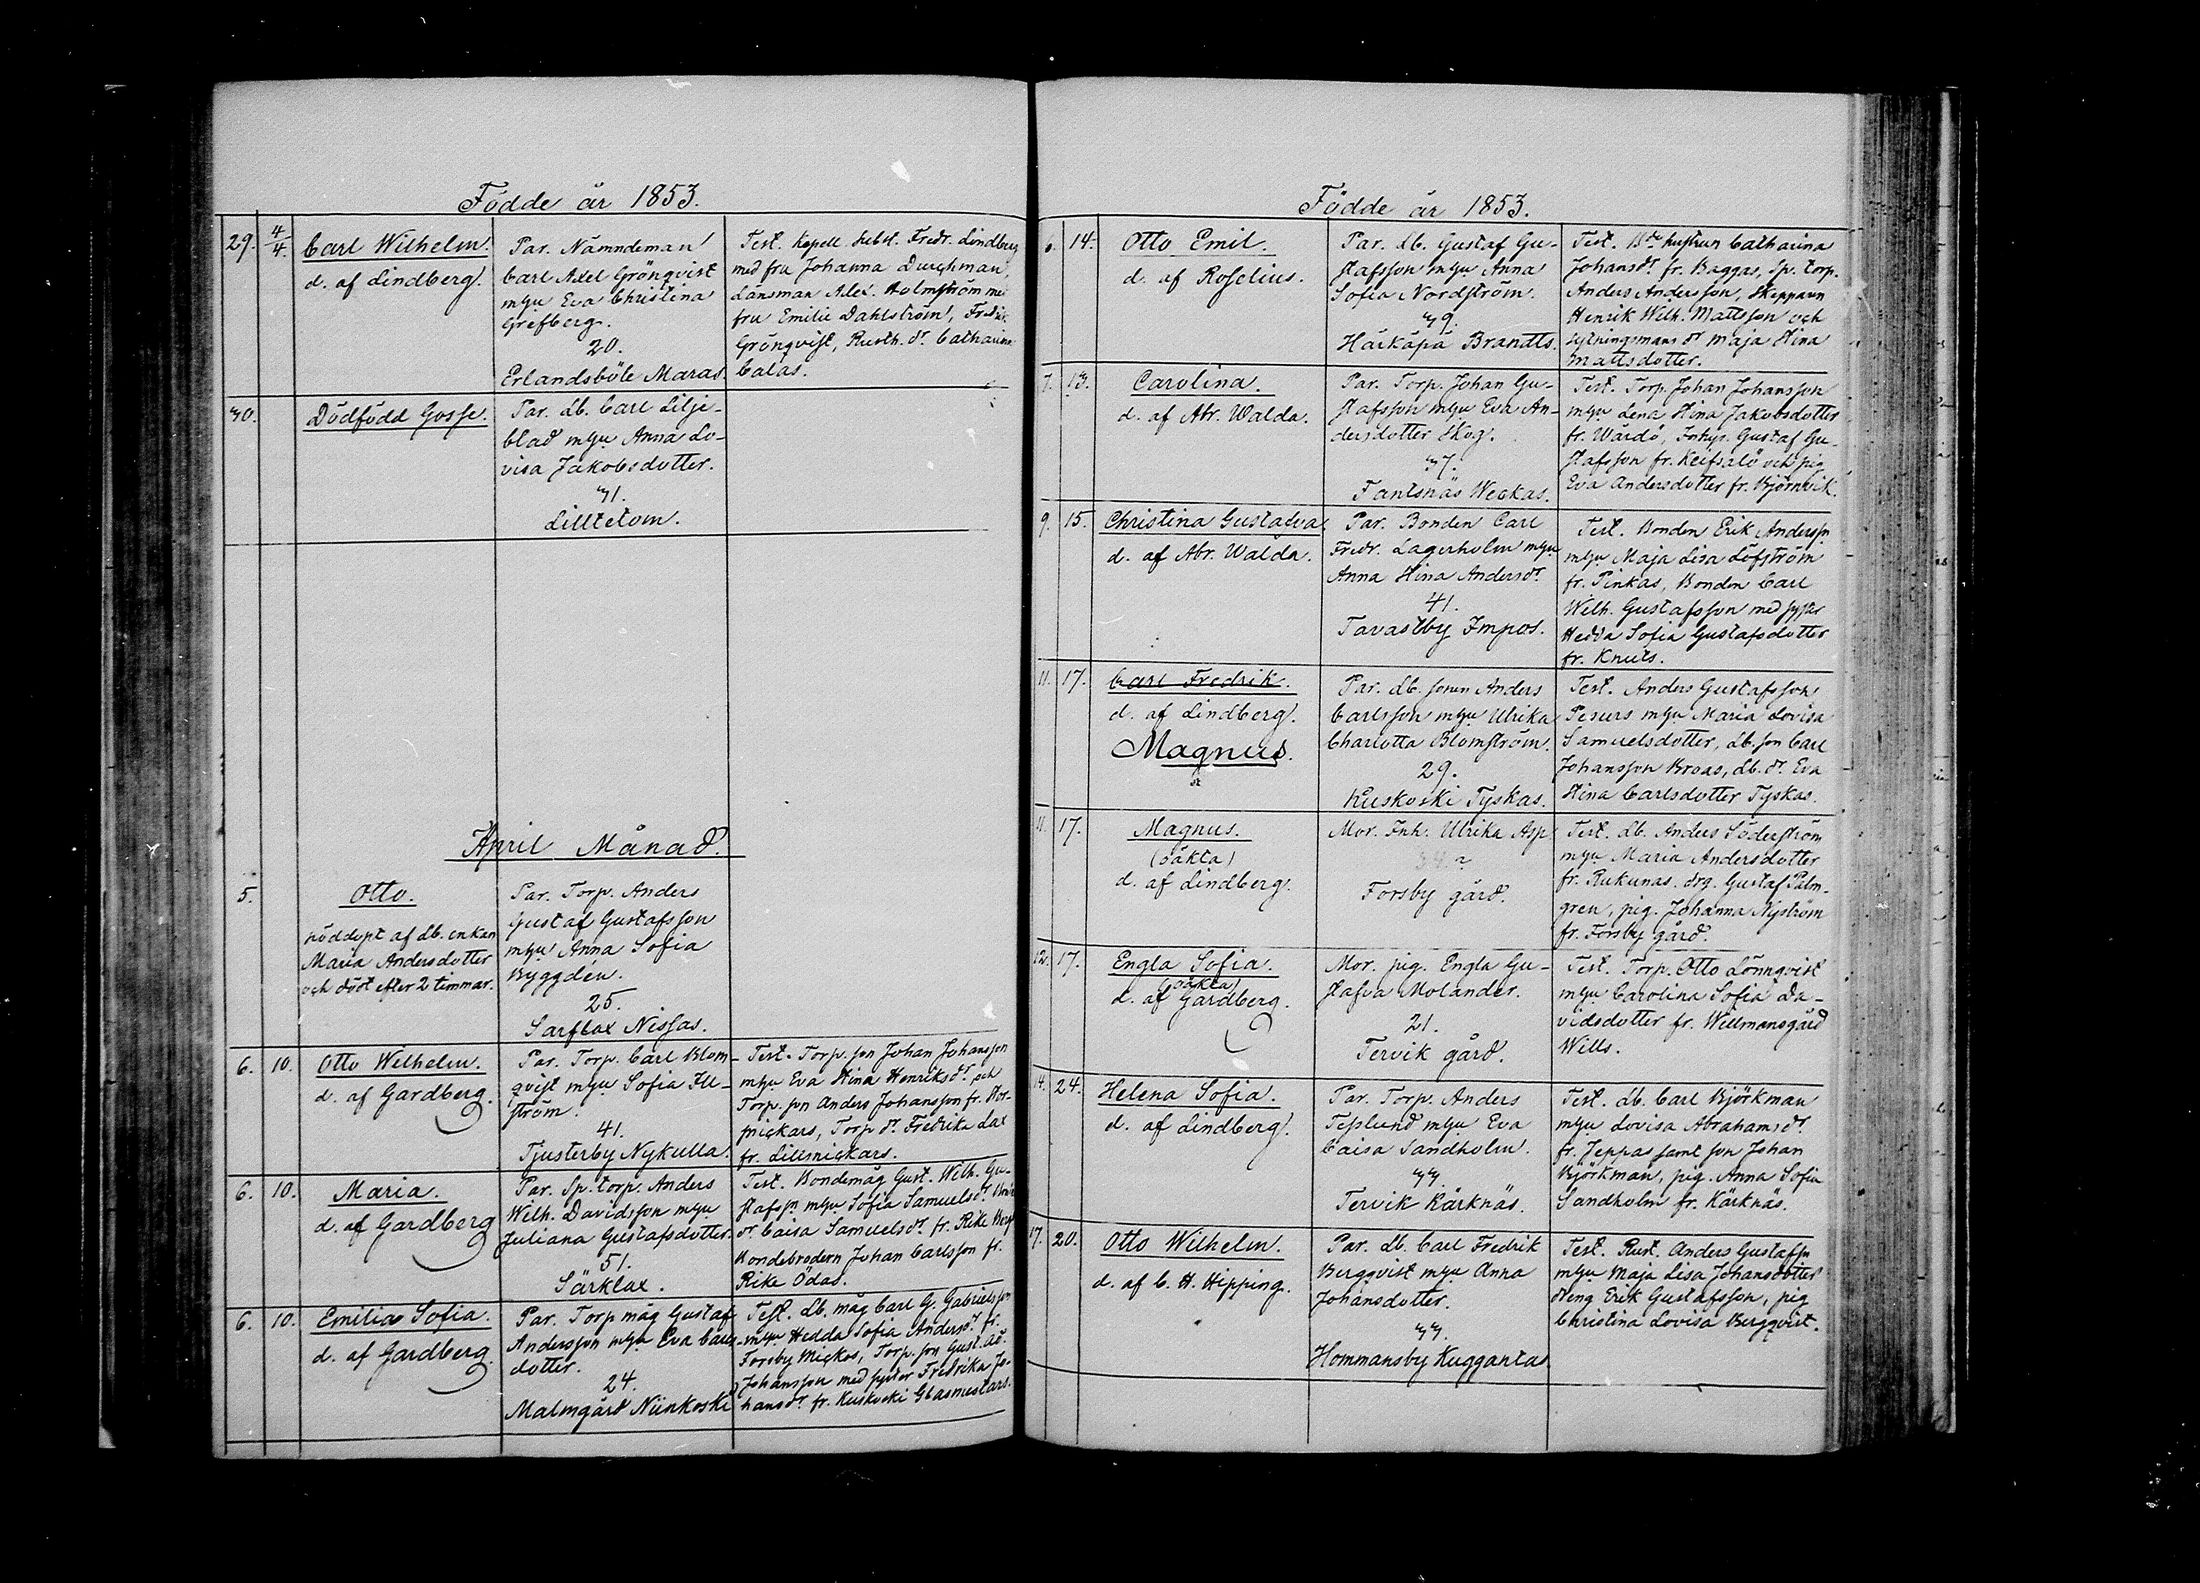 Födde år 1853.
29. 4/4. Carl Wilhelm.
d. af Lindberg.
Par. Nämndeman
Carl Axel Grönqvist
mhu Eva Christina
Grefberg.
20.
Erlandsböle Maras.
Test. Kapell. subst. Fredr. Lindberg
med fru Johanna Durchman,
Länsman Alex. Holmström med
fru Emilie Dahlström, Fredrik
Grönqvist, Rusth. dr Catharina
Calas.
30. Dödfödd Gosse.
Par. Lb. Carl Lilje-
blad mhu Anna Lo-
visa Jakobsdotter.
31.
Lilltetom.
April Månad.
5. Otto.
nöddöpt af Lb. enkan
Maria Andersdotter
och död efter 2 timmar.
Par. Torp. Anders
Gustaf Gustafsson
mhu Anna Sofia
Byggdén.
25.
Sarflax Nissas.
6. 10. Otto Wilhelm.
d. af Gardberg.
Par. Torp. Carl Blom-
qvist mhu Sofia Ill-
ström.
41.
Tjusterby Nykulla.
Test. Torp. son Johan Johansson
mhu Eva Stina Henriksdr och
Torp. son Anders Johansson fr. Nor-
rmickars, Torp dr Fredrika Lax
fr. Lillmickars.
6. 10. Maria.
d. af Gardberg
Par. Sp. torp. Anders
Wilh. Davidsson mhu
Juliana Gustafsdotter.
51.
Särklax.
Test. Bondemåg Gust. Wilh. Gu-
stafsn mhu Sofia Samuelsdr
dr Caisa Samuelsdr fr. Rike
Bondebrodern Johan Carlsson fr.
Rike Ödas.
6. 10. Emilia Sofia.
d. af Gardberg.
Par. Torp måg Gustaf
Andersson mhu Eva Carls-
dotter.
24.
Malmgård Niinkoski
Test. Lb. måg Carl G. Gabrielsson
mhu Hedda Sofia Andersdr fr.
Forsby Mickos, Torp. son Gust. Ad.
Johansson med syster Fredrika Jo-
hansdr fr. Kuskoski Glasmestars.
Födde år 1853.
6. 14. Otto Emil.
d. af Roselius.
Par. Lb. Gustaf Gu-
stafsson mhu Anna
Sofia Nordström.
39.
Härkäpä Brandts.
Test. Bde hustrun Catharina
Johansdr fr. Baggas, Sp. torp.
Anders Andersson, Skepparen
Henrik Wilh. Mattsson och
sytningsmans dr Maja Stina
Mattsdotter.
7. 13. Carolina.
d. af Abr. Walda.
Par. Torp. Johan Gu-
stafsson mhu Eva An-
dersdotter Skog.
37.
Fantsnäs Weckas.
Test. Torp. Johan Johansson
mhu Lena Stina Jakobsdotter
fr. Wårdö, Inhys. Gustaf Gu-
stafsson fr. Keifsalö och pig
Eva Andersdotter fr. Björnvik.
9. 15. Christina Gustafva.
d. af Abr. Walda.
Par. Bonden Carl
Fredr. Lagerholm mhu
Anna Stina Andersdr
41.
Tavastby Impos.
Test. Bonden Erik Andersson
mhu Maja Lisa Löfström
fr. Pinkas, Bonden Carl
Wilh. Gustafsson med syster
Hedda Sofia Gustafsdotter
fr. Knuts.
11. 17. Carl Fredrik.
d. af Lindberg.
Magnus.
Par. Lb. sonen Anders
Carlsson mhu Ulrika
Charlotta Blomström.
29.
Kuskoski Tyskas.
Test. Anders Gustafsson
Pesurs mhu Maria Lovisa
Samuelsdotter, Lb. son Carl
Johansson Broas, Lb. dr Eva
Stina Carlsdotter Tyskas.
11. 17. Magnus.
(oäkta)
d. af Lindberg.
Mor. Inh. Ulrika Asp
Forsby gård.
Test. Lb. Anders Söderström
mhu Maria Andersdotter
fr. Rukunas. drg. Gustaf Palm-
gren, pig. Johanna Nyström
fr. Forsby gård.
12. 17. Engla Sofia.
(oäkta)
d. af Gardberg.
Mor. pig. Engla Gu-
stafva Molander.
21.
Tervik gård.
Test. Torp. Otto Lönnqvist
mhu Carolina Sofia Da-
vidsdotter fr. Willmansgård
Wills.
14. 24. Helena Sofia.
d. af Lindberg.
Par. Torp. Anders
Teslund mhu Eva
Caisa Sandholm.
33.
Tervik Kärknäs.
Test. Lb. Carl Björkman
mhu Lovisa Abrahamsdr
fr. Jeppas samt son Johan
Björkman, pig. Anna Sofia
Sandholm fr. Kärknäs.
17. 20. Otto Wilhelm.
d. af C. H. Hipping.
Par. Lb. Carl Fredrik
Bergqvist mhu Anna
Johansdotter.
33.
Hommansby Kuggantas
Test. Rust. Anders Gustafsn
mhu Maja Lisa Johansdotter
dreng Erik Gustafsson, pig
Christina Lovisa Bergqvist.